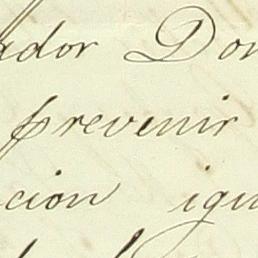 ador Don
prevenir
cion igu